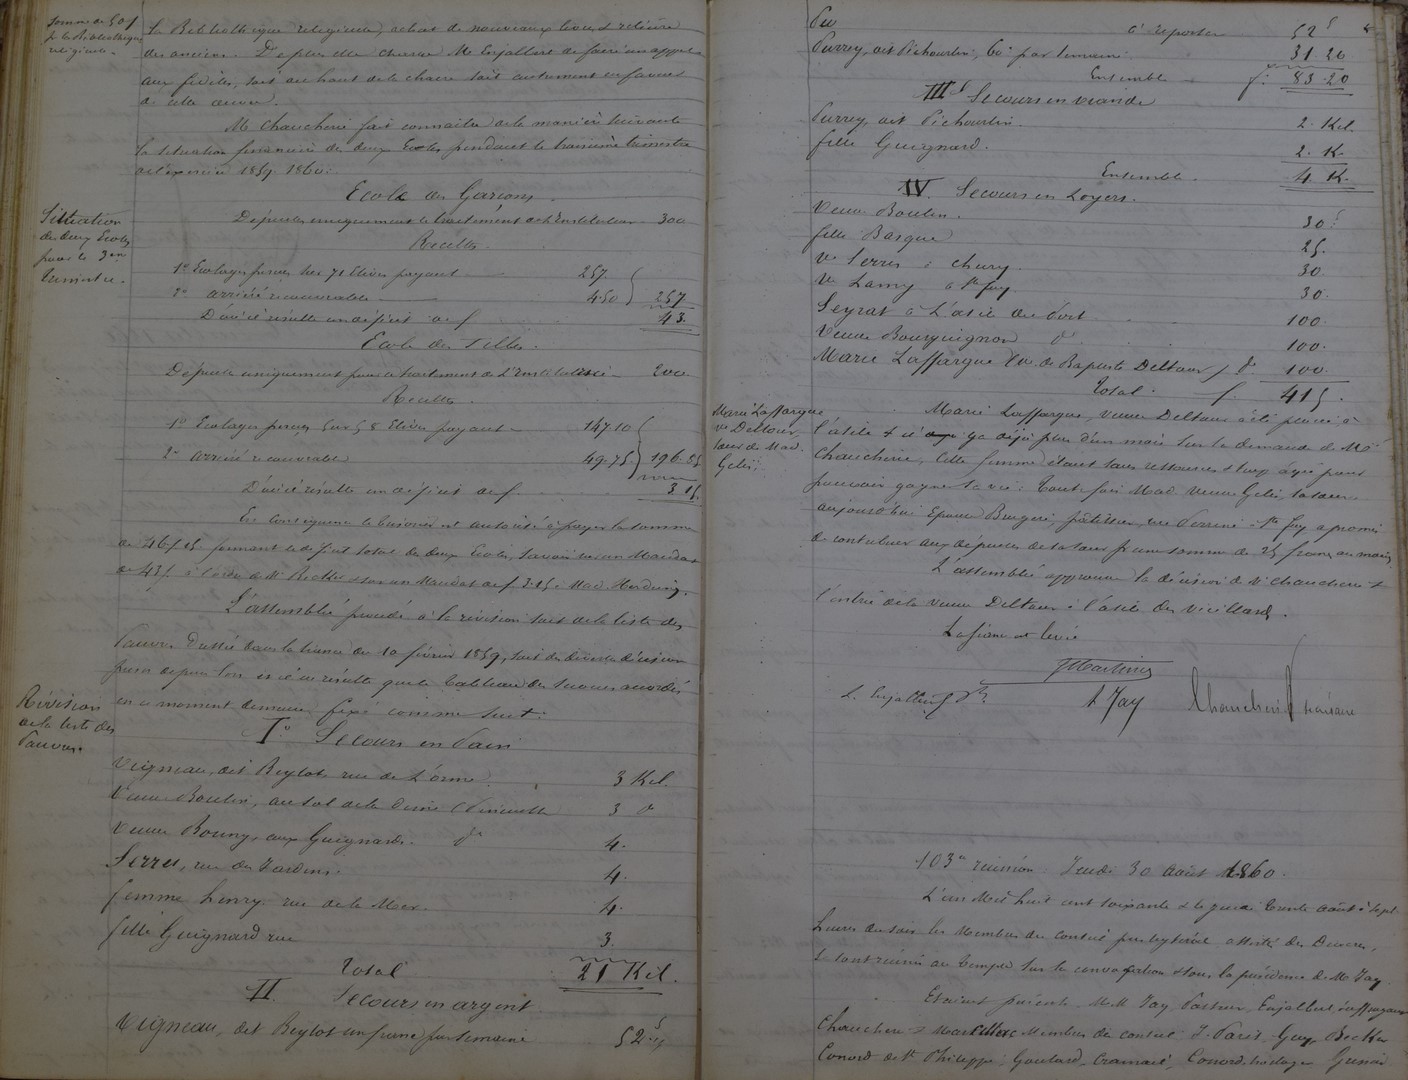 Somme de 50 f
p. la Bibliothèque
religieuse.
la Bibliothèque religieuse, achat de nouveaux livres & reliure
des anciens. De plus elle charge Mr Enjalbert de faire un appel
aux fidèles, soit du haut de la chaire soit autrement en faveur
de cette œuvre.
Mr Chaucherie fait connaître de la manière suivante
la situation financière des deux Ecoles pendant le troisième trimestre
de l'exercice 1859-1860:
Ecole des Garçons.
Situation
des deux Ecoles
pour le 3em
trimestre.
Dépenses uniquement le traitement de l'Instituteur 300
Recettes.
1° Ecolages perçus sur 71 Elèves payant 257.
2° arriéré recouvrable 4.50 257
D'où il résulte un déficit de f 43.
Ecole des Filles.
Dépense uniquement pour le traitement de l'Institutrice 200
Recettes.
1° Ecolages perçus sur 58 Elèves payant 147.10
2° arriéré recouvrable 49.75 196.85
D'où il résulte un déficit de f 3.15
En conséquence le trésorier est autorisé à payer la somme
de 46f 15 formant le déficit total des deux Ecoles, savoir un Mandat
de 43f. à l'ordre de Mr Becker & un Mandat de f 3.15 à Mad.
L'assemblée procède à la révision de la liste des
Révision
de la liste des
Pauvres.
Pauvres dressée dans la séance du 10 février 1859, soit des diverses décisions
prises depuis lors, et il en résulte que le tableau des secours accordés
en ce moment demeure fixé comme suit:
I° Secours en Pain
Vigneau, dit Beylot, rue de l'orme 3 Kil.
Veuve Boulin, au sol de la 3 d°
Veuve Bouny, aux Guignards. d° 4.
Serres, rue des Jardins. 4.
femme Henry, rue de la Mer. 4.
fille Guignard rue 3.
Total 21 Kil.
II. Secours en argent
Vigneau, dit Beylot un franc par semaine 52 f
à reporter 52 f
Purrey, dit Pichourlin, 60c par semaine 31.20
Ensemble f. 83.20
III° Secours en viande
Purrey, dit Pichourlin. 2. Kil.
fille Guignard. 2. K.
Ensemble. 4 K.
IV. Secours en Loyers.
Veuve Boulin. 30 f
fille Basque 25.
Ve Serres à 30
Ve Lamy à Ste foy 30.
Seyrat à L'asile de Port 100.
Veuve Bourguignon d° 100.
Marie Laffargue Ve de Baptiste Deltour d° 100.
Total. f. 415.
Marie Laffargue
ve Deltour,
sœur de Mad.
Gelis.
Marie Laffargue, veuve Deltour a été placée à
l'asile il y a déjà plus d'un mois sur la demande de Mr
Chaucherie, cette femme étant sans ressources & trop âgée pour
pouvoir gagner sa vie: Toutefois Mad. veuve Gelis, sa sœur
aujourd'hui Epouse Bruguère, pâtissier, rue à Ste foy a promis
de contribuer aux dépenses de sa sœur pr une somme de 25 francs au moins
L'assemblée approuve la décision de Mr Chaucherie &
l'entrée de la veuve Deltour à l'asile des vieillards.
La séance est levée
JMartiner
L. Enjalbert Pr
A Jay
Chaucherie secrétaire
103e réunion. Jeudi 30 août 1860.
L'an Mil huit cent soixante & le jeudi trente août à sept
heures du soir les Membres du conseil presbytéral assisté des Diacres,
se sont réunis au temple sur la convocation & sous la présidence de Mr Jay.
Etaient présents MM Jay Pasteur, Enjalbert suffragant
Chaucherie & Martiner Membres du conseil; Guy Becker
Conord de St Philippe, Goulard, Cramail, Conord horloger